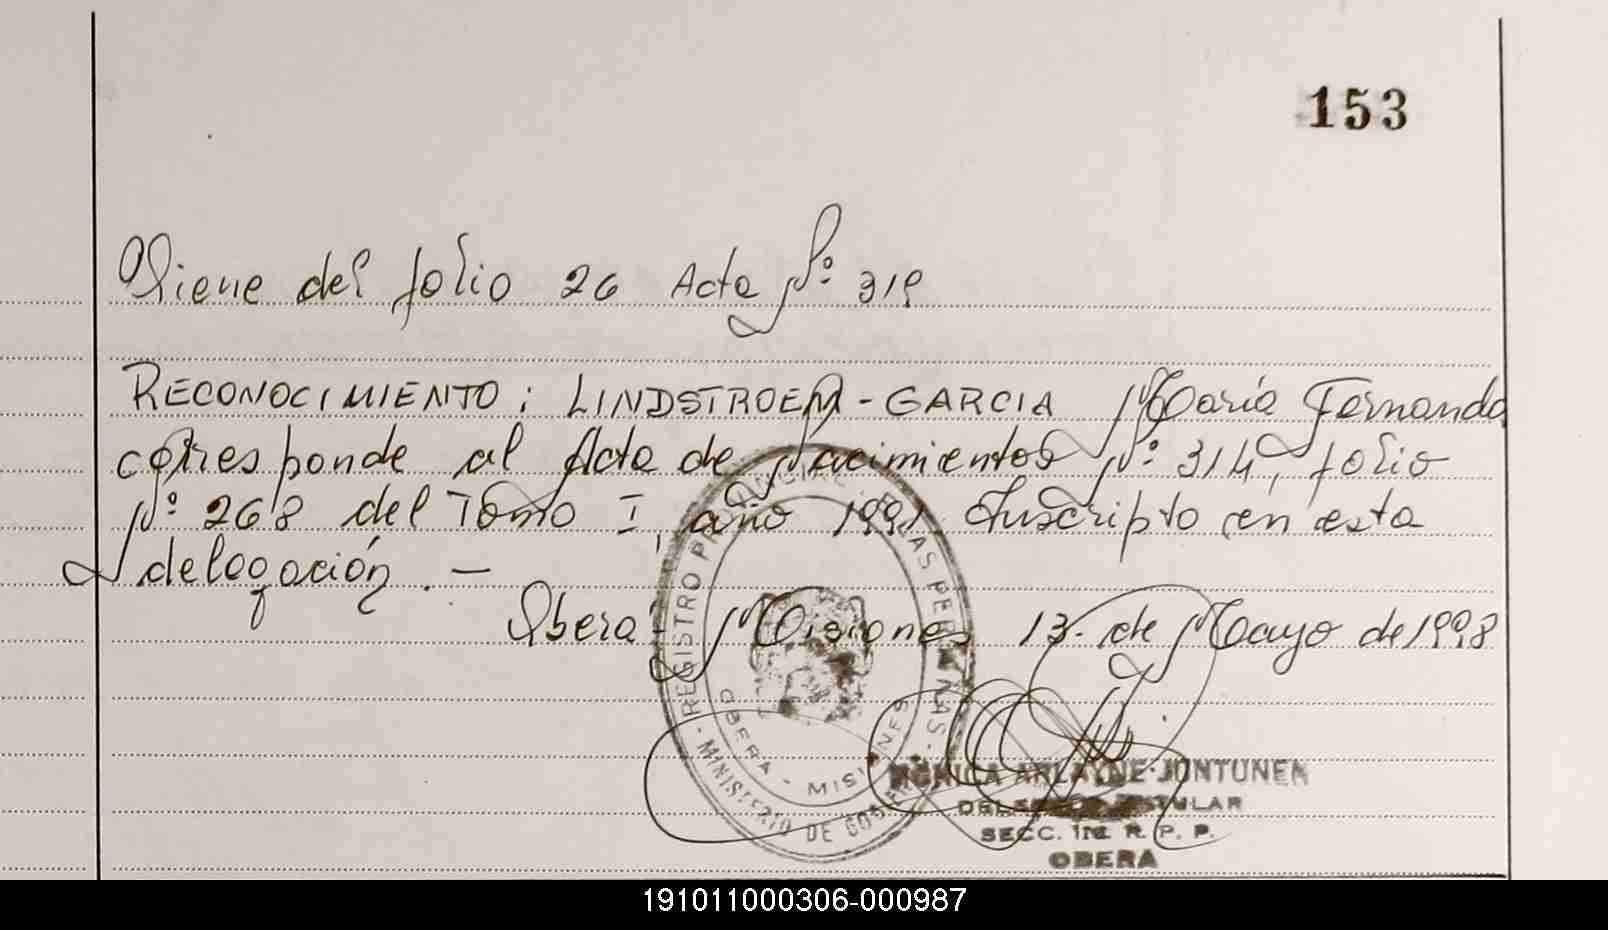 153
Viene del folio 26 Acta Nº 319
RECONOCIMIENTO: LINDSTROEM-GARCIA María Fernanda
corresponde al Acta de Nacimientos Nº 314, folio
Nº 268 del Tomo I, año 1991 Suscripto en esta
delegación.—
Oberá- Misiones 13 de Mayo de 1998
REGISTRO PROVINCIAL DE LAS PERSONAS
OBERA - MISIONES
MINISTERIO DE GOB
MONICA ARLAYNE JUNTUNEN
TITULAR
SECC. R. P. P.
OBERA
191011000306-000987